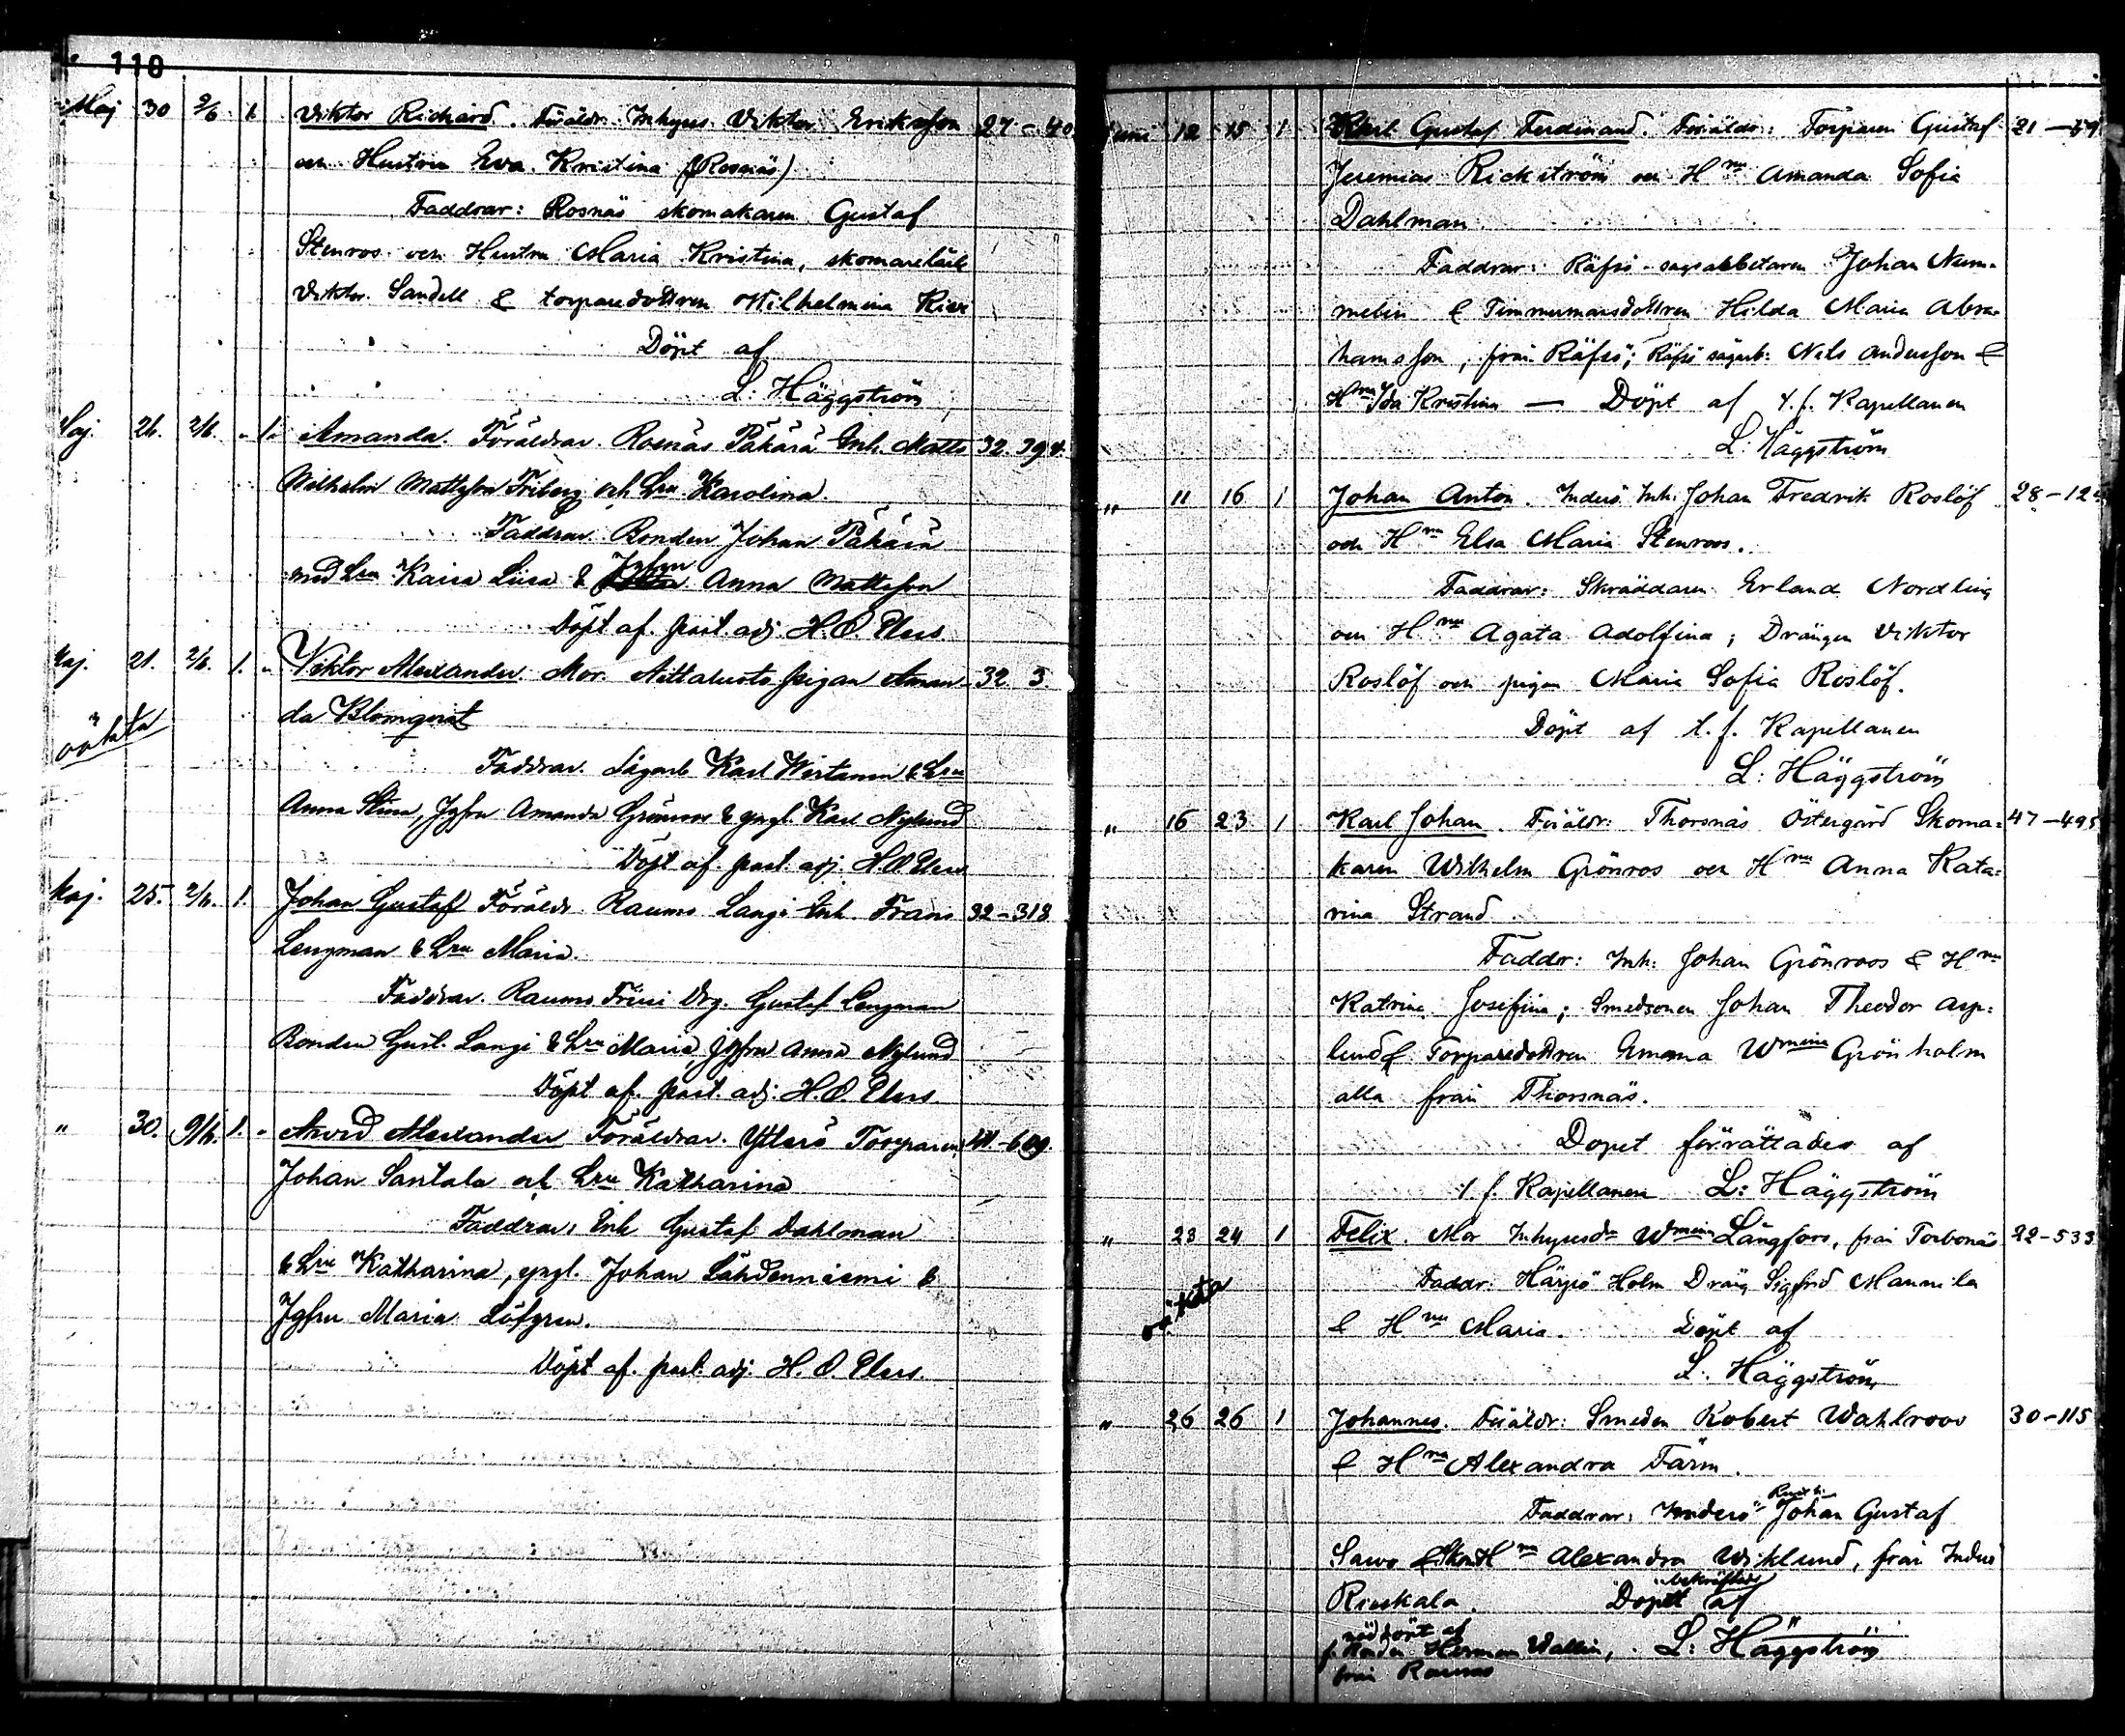 110
Maj 30 2/6 1 Viktor Richard. Föräldr. Inhyses Viktor Eriksson 27-40
och Hustrun Eva Kristina (Rosnäs)
Faddrar: Rosnäs skomakaren Gustaf
Stenros och Hustru Maria Kristina, skomarelärl
Viktor Sandell & torparedottren Wilhelmina
Döpt af
L: Häggström
Maj. 2/6. 1. Amanda. Föräldrar. Rosnäs Påkärä Inh. Matts 32.
Wilhelm Mattsson Friberg och Hru Karolina.
Faddrar Bonden Johan Påkärä
med Hru Kaisa Liisa & Jgfru Anna Mattsson
Döpt af. past. adj. H. O. Elers.
Maj. 21. 2/6. 1. Viktor Alexander. Mor. pigan Aman- 32. 3.
oäkta da Blomqvist
Faddrar. Sågarb Karl Wirtanen & Hru
Anna Stina, Jgfru Amanda Grönroos & yngl. Karl Nylund
Döpt af. past. adj. H. O. Elers
Maj. 25. 2/6. 1. Johan Gustaf Föräldr. Raumo Langi Inh. Frans 32-318
Lengman & Hru Maria.
Faddrar. Raumo Drg. Gustaf Lengman
Bonden Gust. Langi & Hru Maria Jgfru Anna Nylund
Döpt af. past. adj. H. O. Elers.
" 30. 9/6. 1. Arvid Alexander Föräldrar. Ytterö Torparen
Johan Santala och Hru Katharina
Faddrar, Inh Gustaf Dahlman
& Hru Katharina, yngl. Johan Lähdenniemi &
Jgfru Maria Löfgren.
Döpt af. past. adj. H. O. Elers.
Juni 12 15 1 Karl Gustaf Ferdinand. Föräldr: Torparen Gustaf 21-
Jeremias Rickström och Hru Amanda Sofia
Dahlman.
Faddrar: Räfsö-sågarbetaren Johan Num-
melin & Timmermansdottren Hilda Maria Abra-
hamsson, från Räfsö; Räfsö sågarb: Nils Andersson &
Hru Ida Kristina — Döpt af t. f. Kapellanen
L: Häggström
" 11 16 1 Johan Anton. Inderö Inh. Johan Fredrik Roslöf 28-
och Hru Elsa Maria Stenroos.
Faddrar: Skräddaren Erland Nordling
och Hru Agata Adolfina; Drängen Viktor
Roslöf och pigan Maria Sofia Roslöf.
Döpt af t. f. Kapellanen
L: Häggström
" 16 23 1 Karl Johan. Föräldr: Thorsnäs Östergård Skoma= 47-495
karen Wilhelm Grönros och Hru Anna Kata=
rina Strand.
Faddr: Inh: Johan Grönroos & Hru
Katrina Josefina; Smedsonen Johan Theodor Asp=
lund & Torparedottren Emma Wmina Grönholm
alla från Thorsnäs.
Dopet förrättades af
t f. Kapellanen L: Häggström
" 23 24 1 Felix. Mor Inhysesdr Wmina Långfors, från Torbonäs 22-533
oäkta Faddr: Härpö Holm Dräng Sigfrid Mannila
& Hru Maria. Döpt af
L. Häggström
" 26 26 1 Johannes. Föräldr: Smeden Robert Wahlroos 30-115
& Hru Alexandra Färm.
Faddrar: Inderö Johan Gustaf
Sawo & Hru Alexandra Wiklund, från Inderö
Rieskala. Dopet bekräftadt af
nöddöpt af
Herman Wallin, L: Häggström
från Raumo